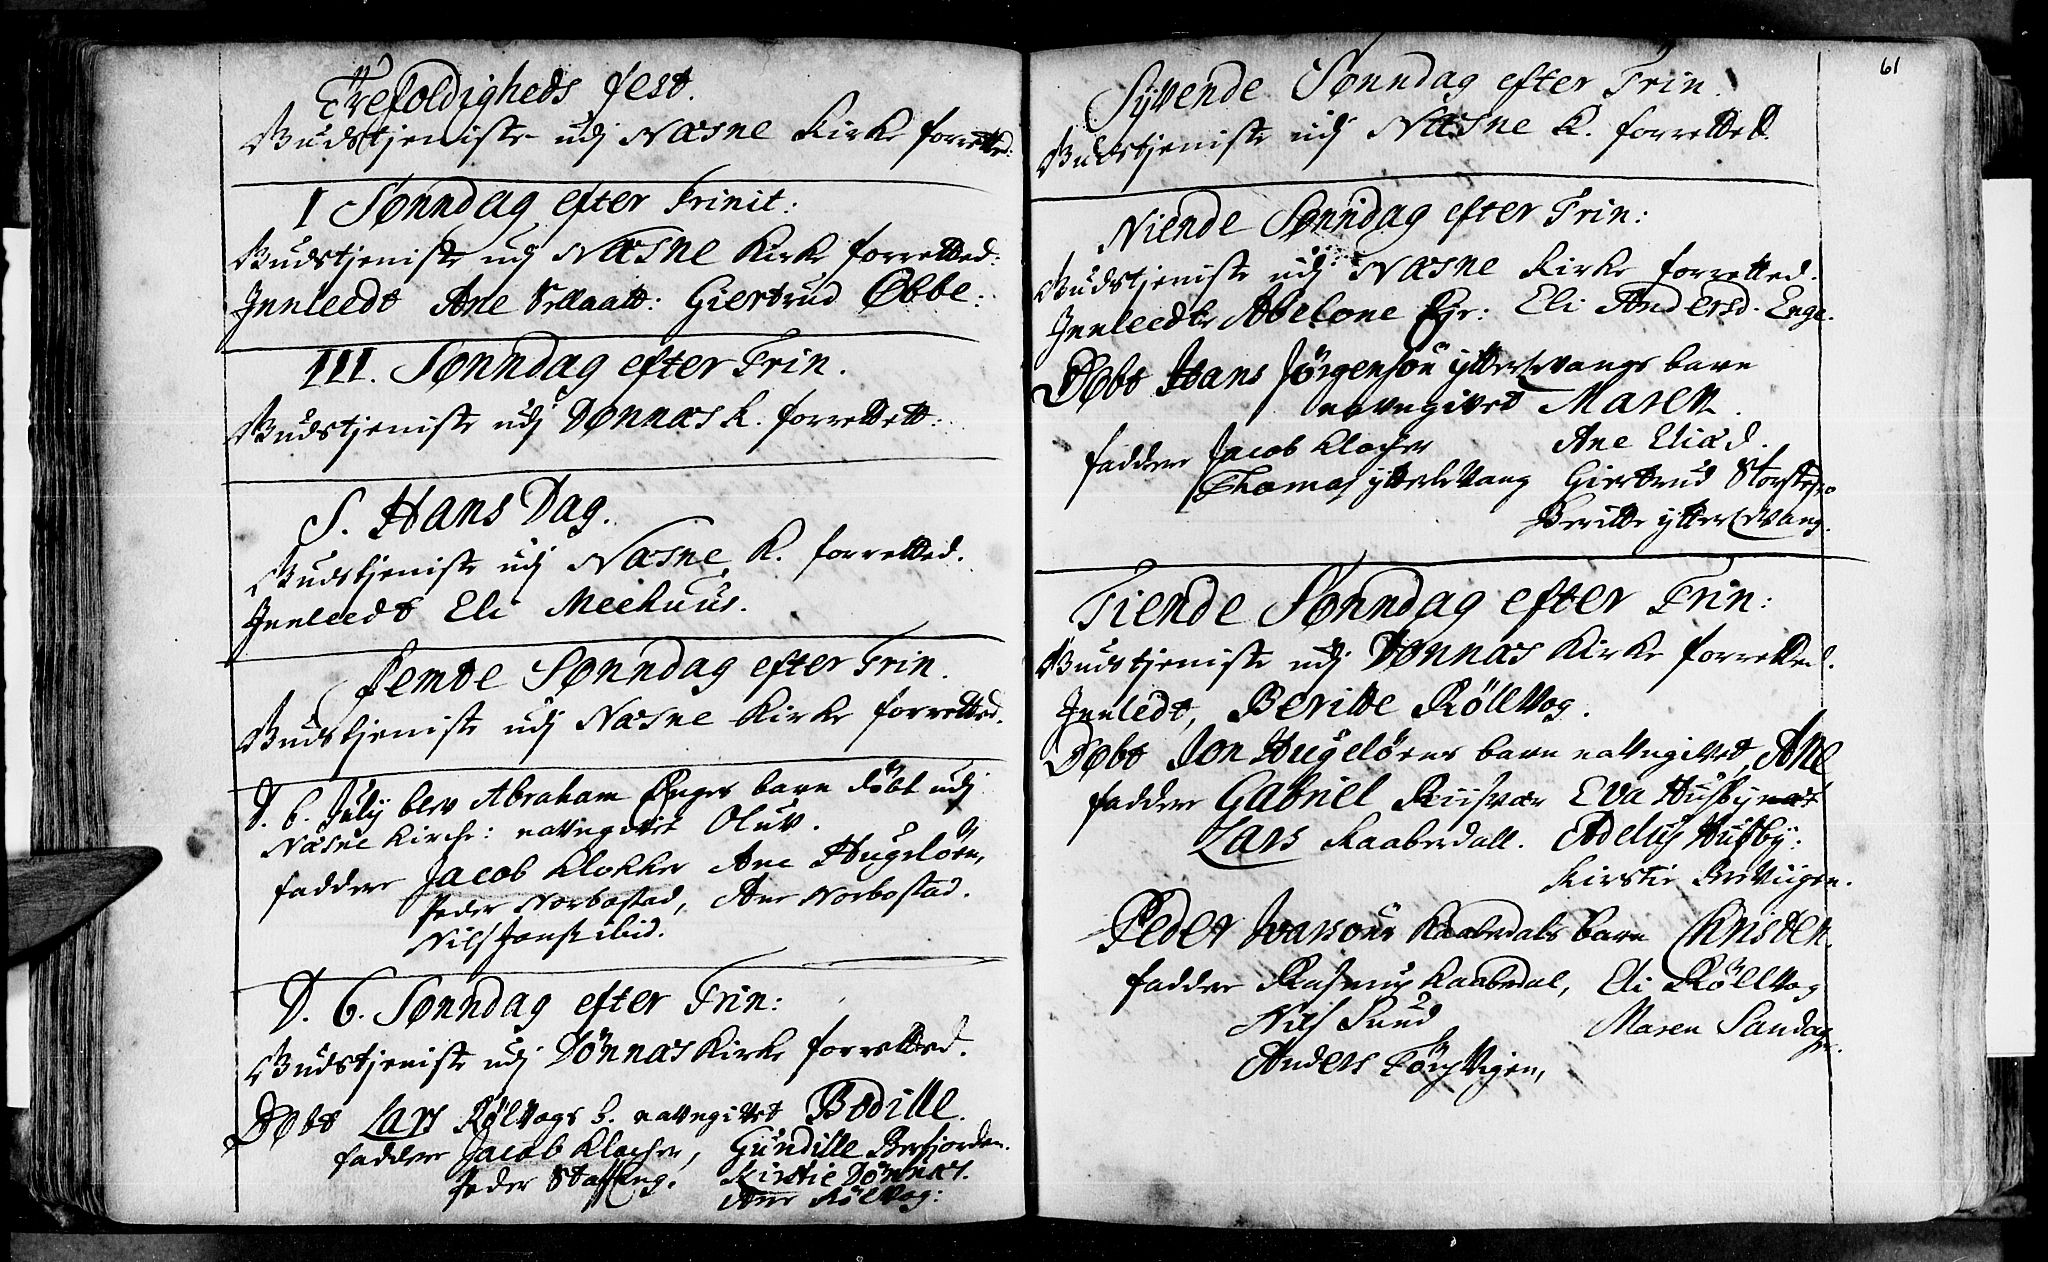 Trefoldigheds fest.
Gudstieniste udj Næsne Kirke forretted:
I Sønndag efter Trinit:
Gudstjeniste udj Næsne Kirke forretted:
Innleedt Ane Sellaatt: Giertrud Ebbe:
III. Sønndag efter Trin.
Gudstjeniste udj Dønnæs K. forrettett:
S. Hans Dag.
Gudstjeniste udj Næsne K. forretted.
Innleedt Eli Meehuus.
femte Sønndag efter Trin.
Gudstjeniste udj Næsne Kirke forretted.
D. 6. July blev Abraham Enges barn døbt udj
Næsne Kirche: navngivet Oluv.
faddere Jacob Klokker Ane Hugeløen,
Peder Norbostad, Ane Norbostad.
Nils Jons: ibid.
D. 6. Sønndag efter Trin:
Gudstjeniste udj Dönnæs Kirke forretted.
Døbt Lars Rølvogs b. navngivet Bodille.
faddere Jacob Klocher, Gundille Berfjorden.
Peder Staffeng. Kirstie Dønnæs.
Ane Rølvog:
61
Syvende Sønndag efter Trin.
Gudstjeniste udj Næsne K. forretted
Niende Sønndag efter Trin:
Gudstjeniste udj Næsne Kirke forretted.
Innleedt Abelone Eje: Eli Andersd. Enge.
Døbt Hans Jörgensön ytterlevangs barn
navngivet Maren.
faddere Jacob Klocher Ane Eliæd.
Thomas ytterlevang Giertrud Storsted
Beritte ytterlevang.
Tiende Sønndag efter Trin:
Gudstjeniste udj Dønnæs Kirke forretted.
Innledt, Beritte Röllvog.
Døbt Jon Hugelöens barn navngivet, Ane
faddere Gabriel Kiisvær Eva Husby
Lars Kaaberdall. Adelus Husby:
Kirstie Brevigen.
Peder Ivarsøns Kaaberdals barn Christen.
faddere Rasmus Kaaberdal, Eli Röllvog
Nils Sund Maren Sandager.
Anders Tönsvigen,